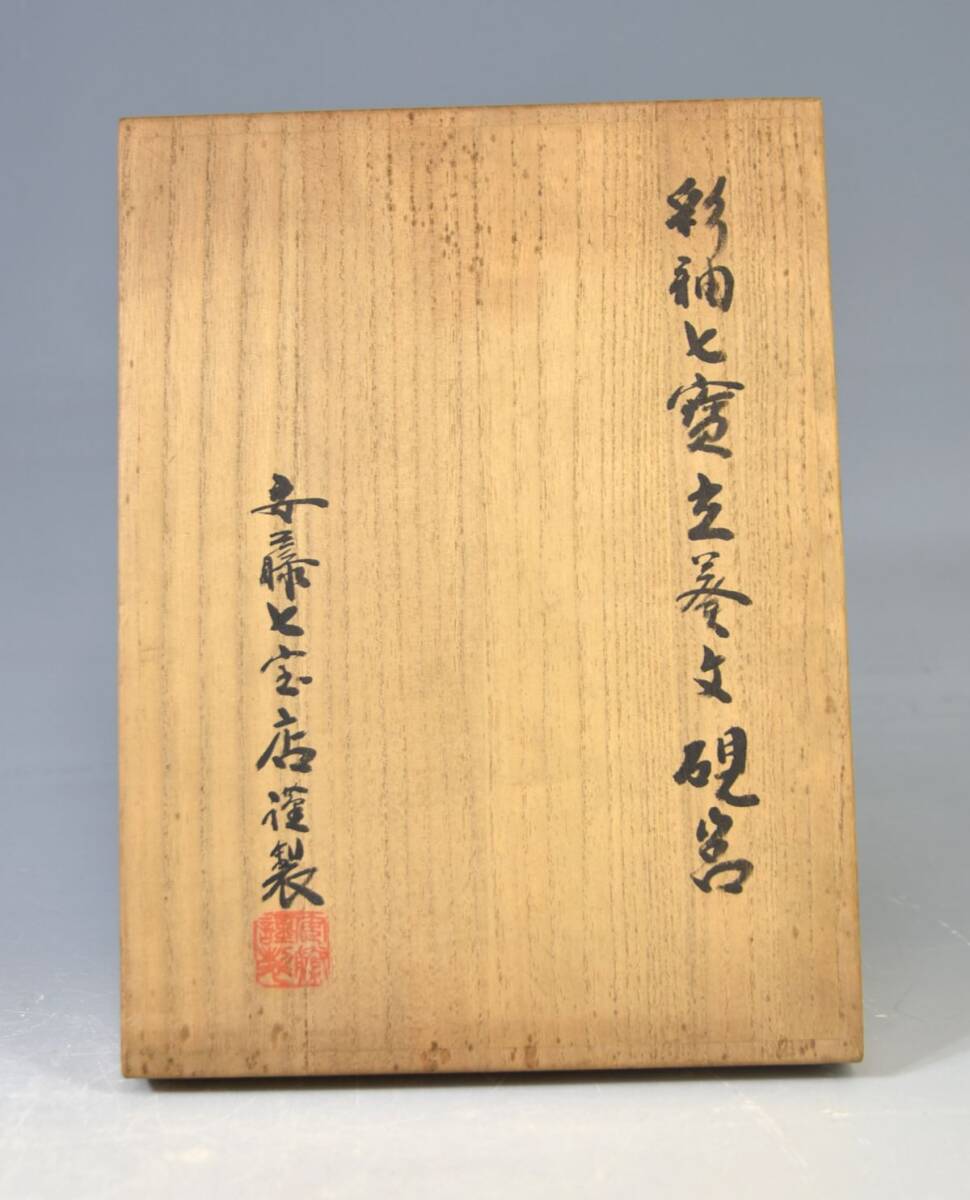 彩釉七寳立葵文硯筥
安藤七宝店謹製